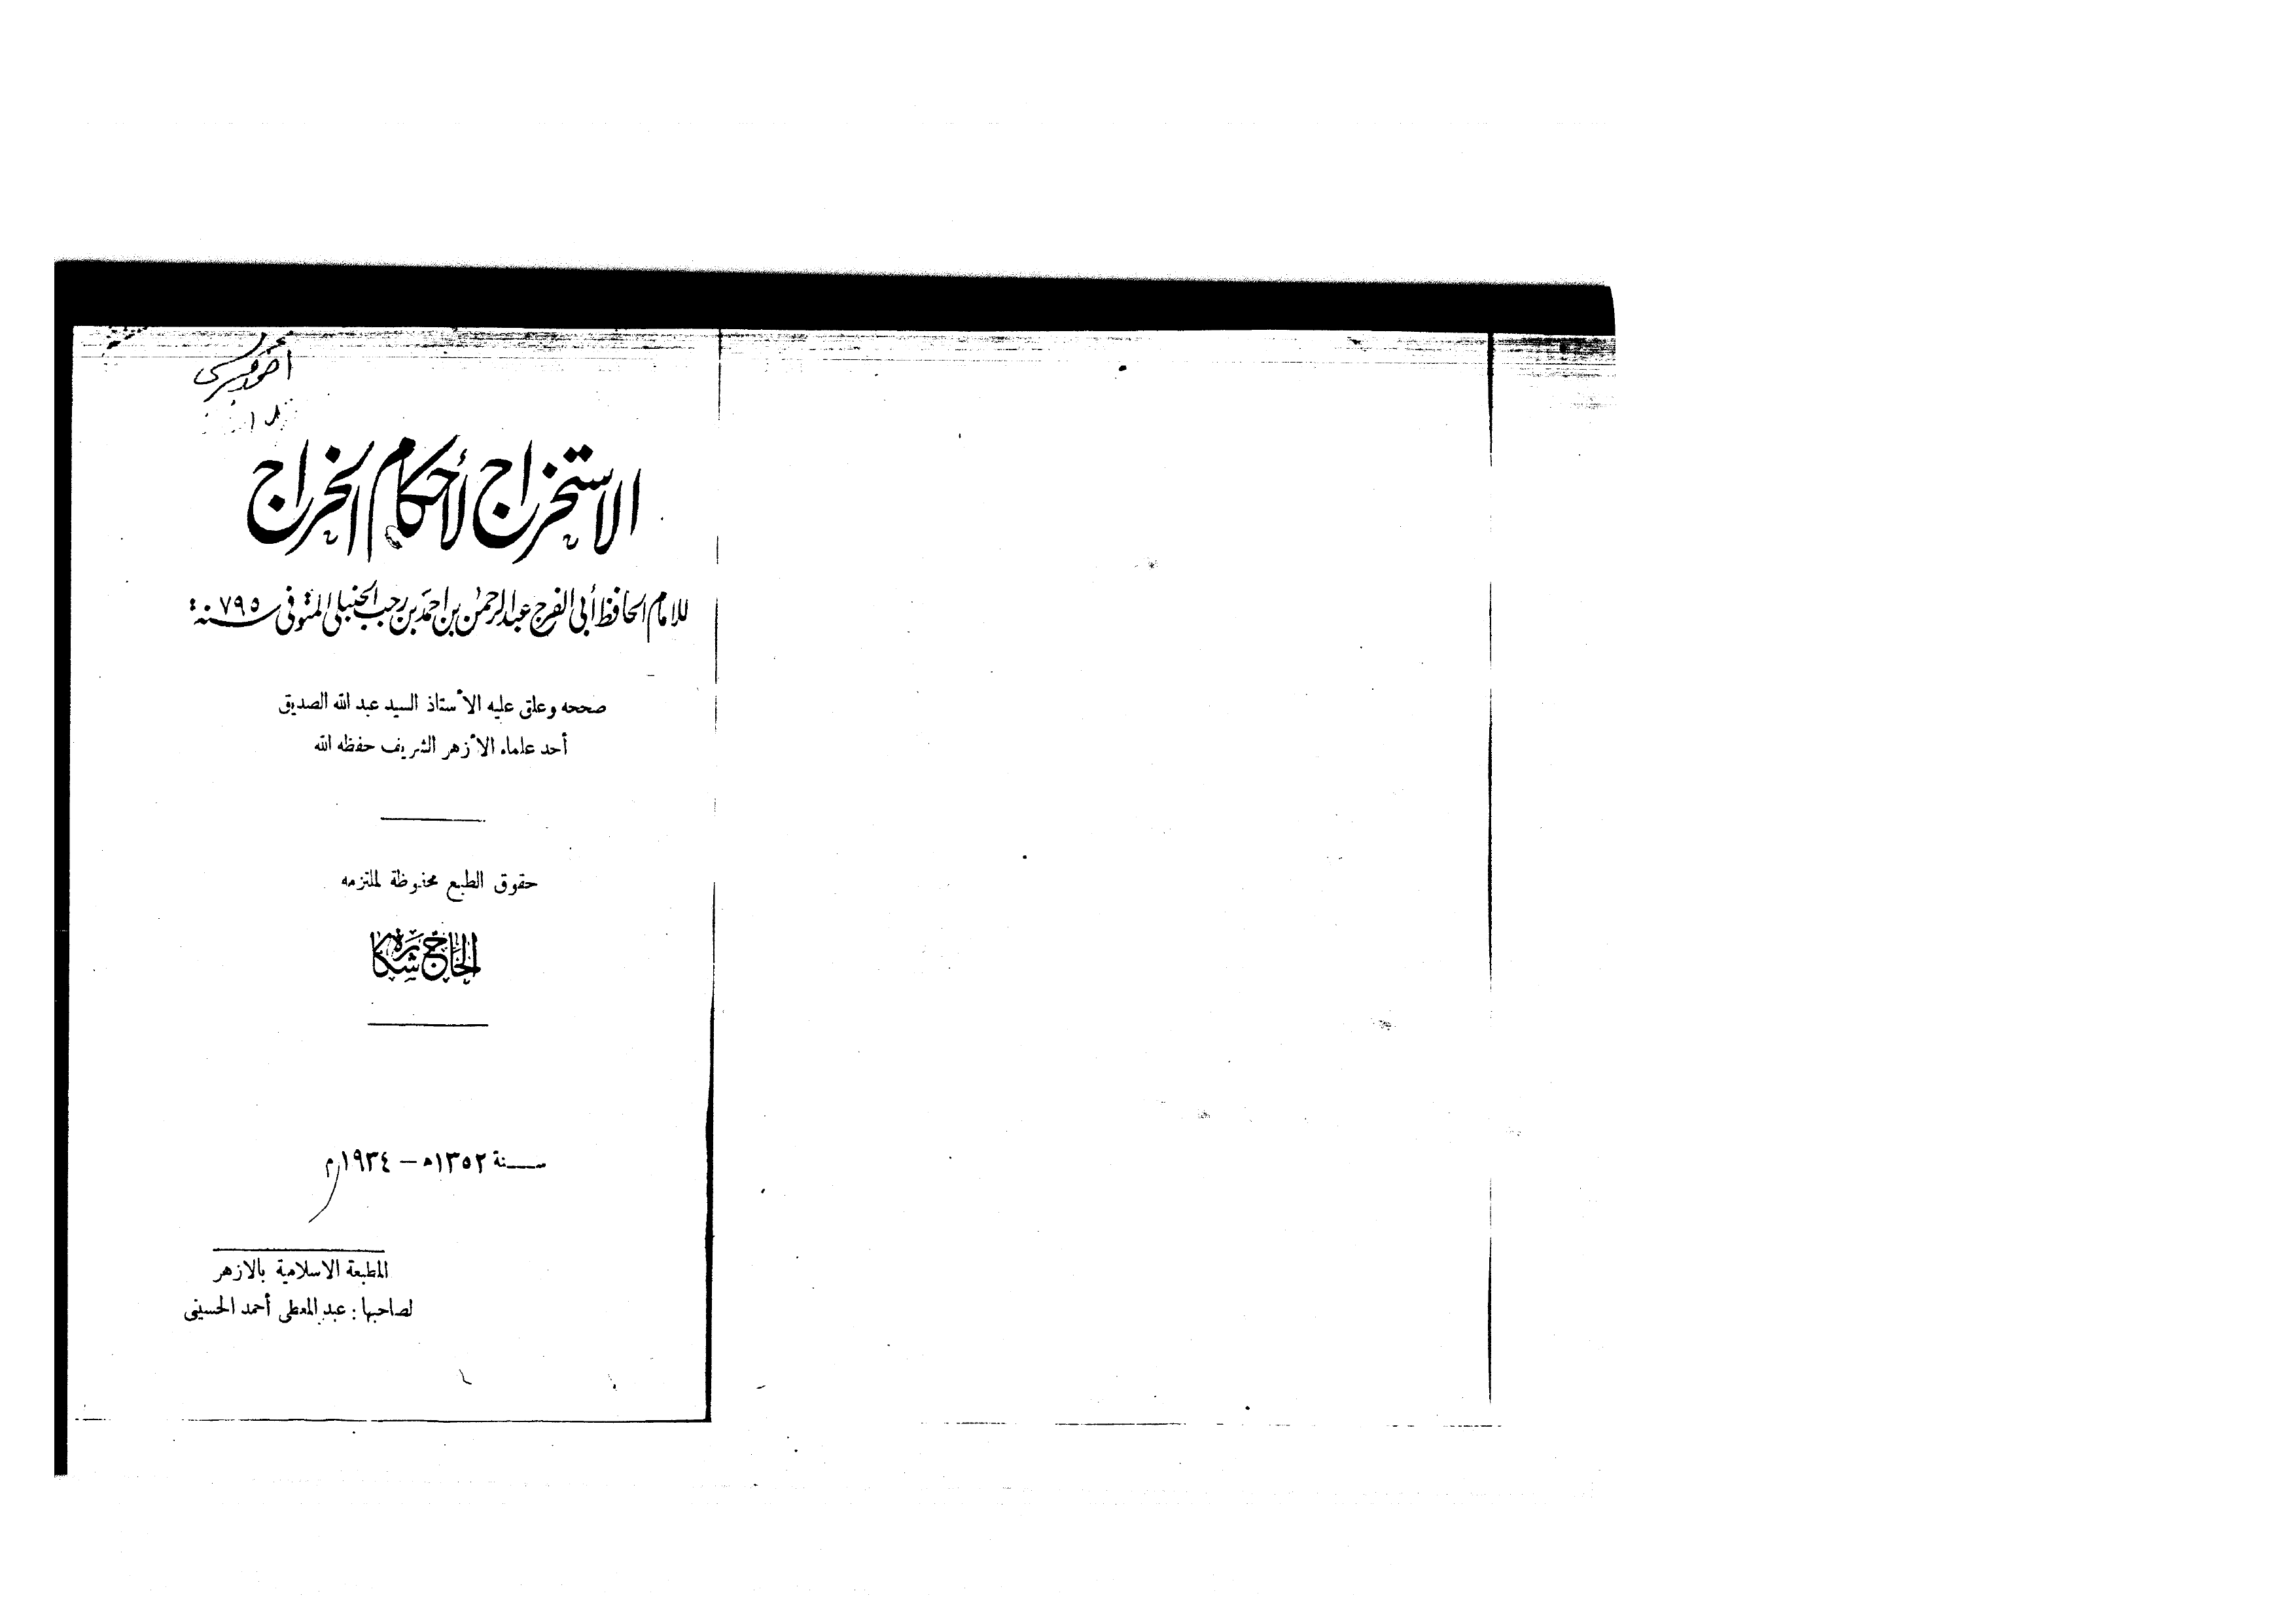 الاستخراج لأحكام الخراج
للامام الحافظ أبي الفرج عبد الرحمن بن احمد بن رجب الحنبلي المتوفى سنة ٧٩٥
صححه وعلق عليه الأستاذ السيد عبد الله الصديق
أحد علماء الأزهر الشريف حفظه الله
حقوق الطبع محفوظة لملتزمه
الحاج شكاره
سنة ١٣٥٢ه – ١٩٣٤م
المطبعة الاسلامية بالازهر
لصاحبها : عبد المعطى أحمد الحسينى